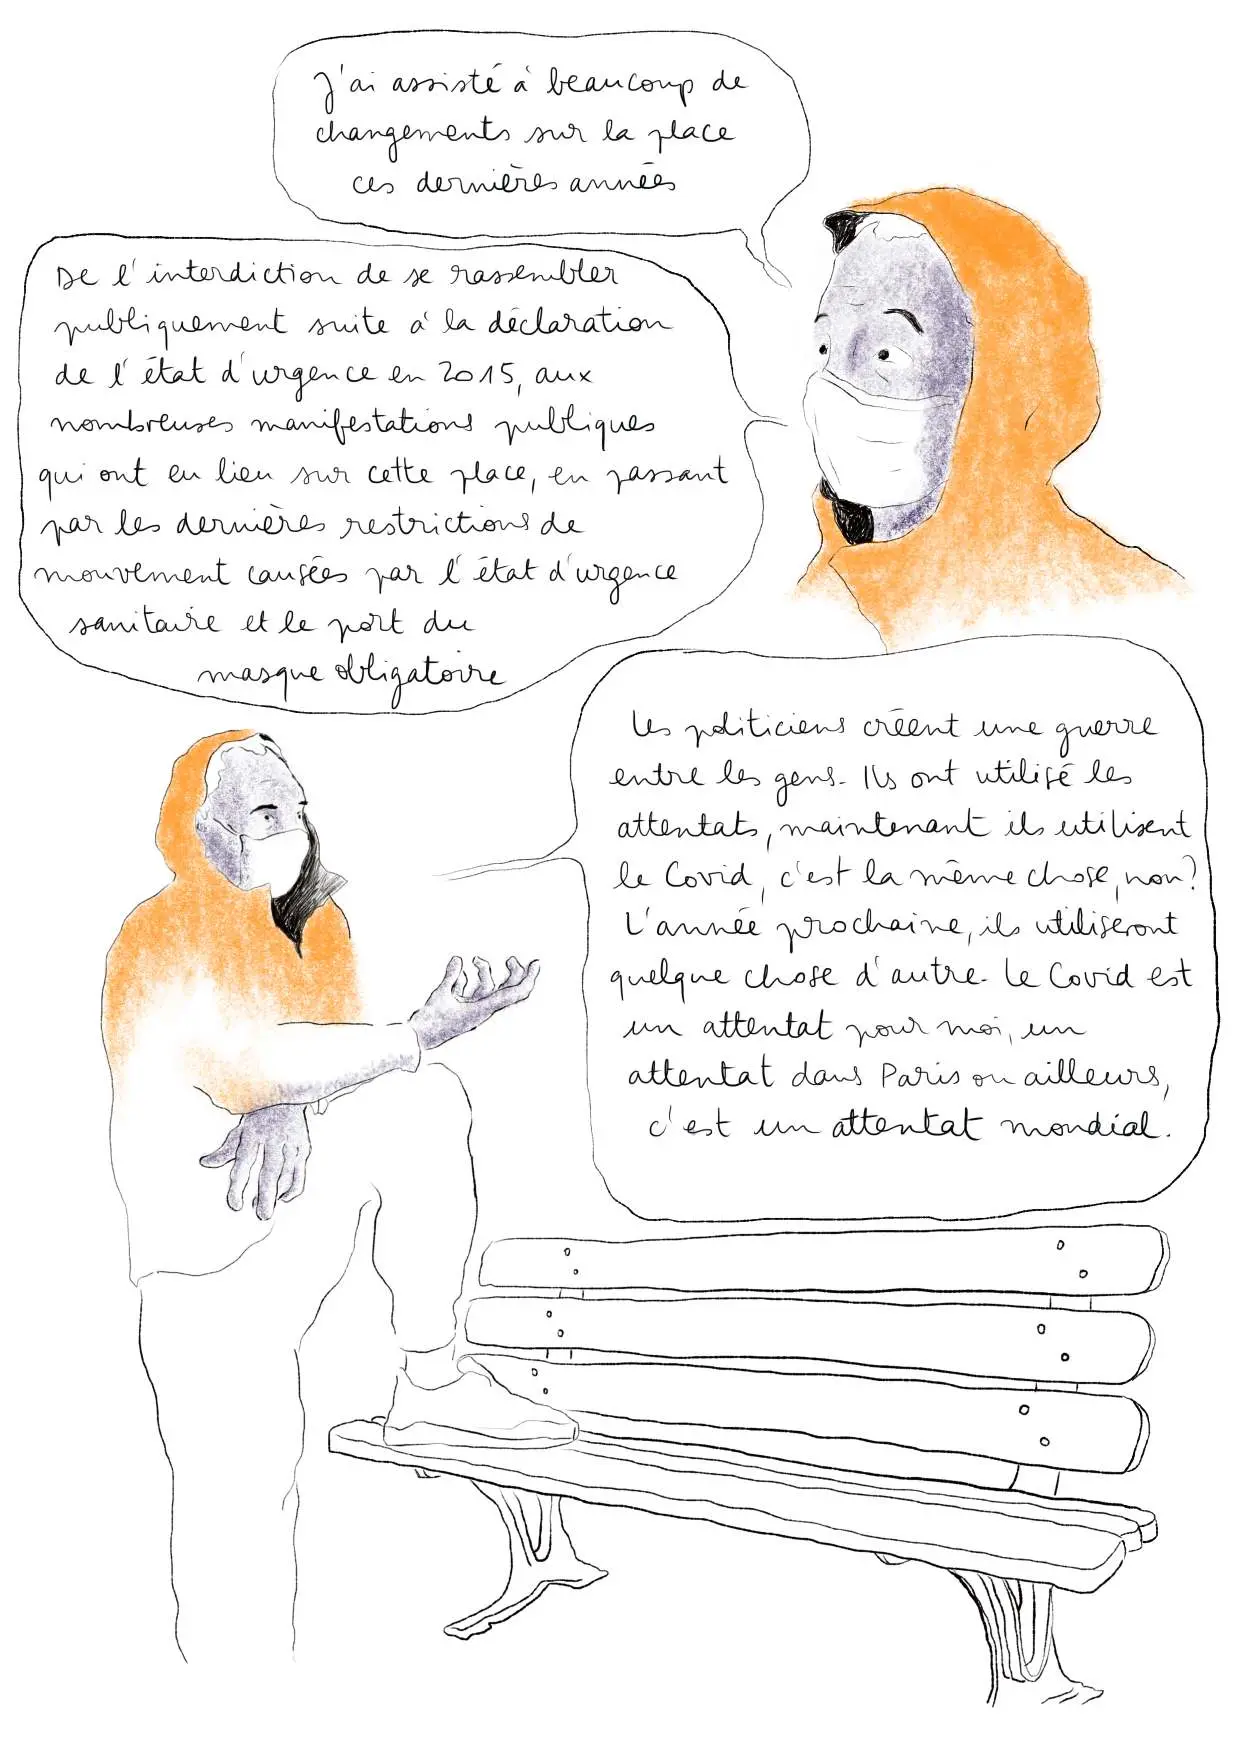 J'ai assisté à beaucoup de
changements sur la place
ces dernières années
De l'interdiction de se rassembler
publiquement suite à la déclaration
de l'état d'urgence en 2015, aux
nombreuses manifestations publiques
qui ont eu lieu sur cette place, en passant
par les dernières restrictions de
mouvement causées par l'état d'urgence
sanitaire et le port du
masque obligatoire
Les politiciens créent une guerre
entre les gens. Ils ont utilisé les
attentats, maintenant ils utilisent
le Covid, c'est la même chose, non?
L'année prochaine, ils utiliseront
quelque chose d'autre. Le Covid est
un attentat pour moi, un
attentat dans Paris ou ailleurs,
c'est un attentat mondial.